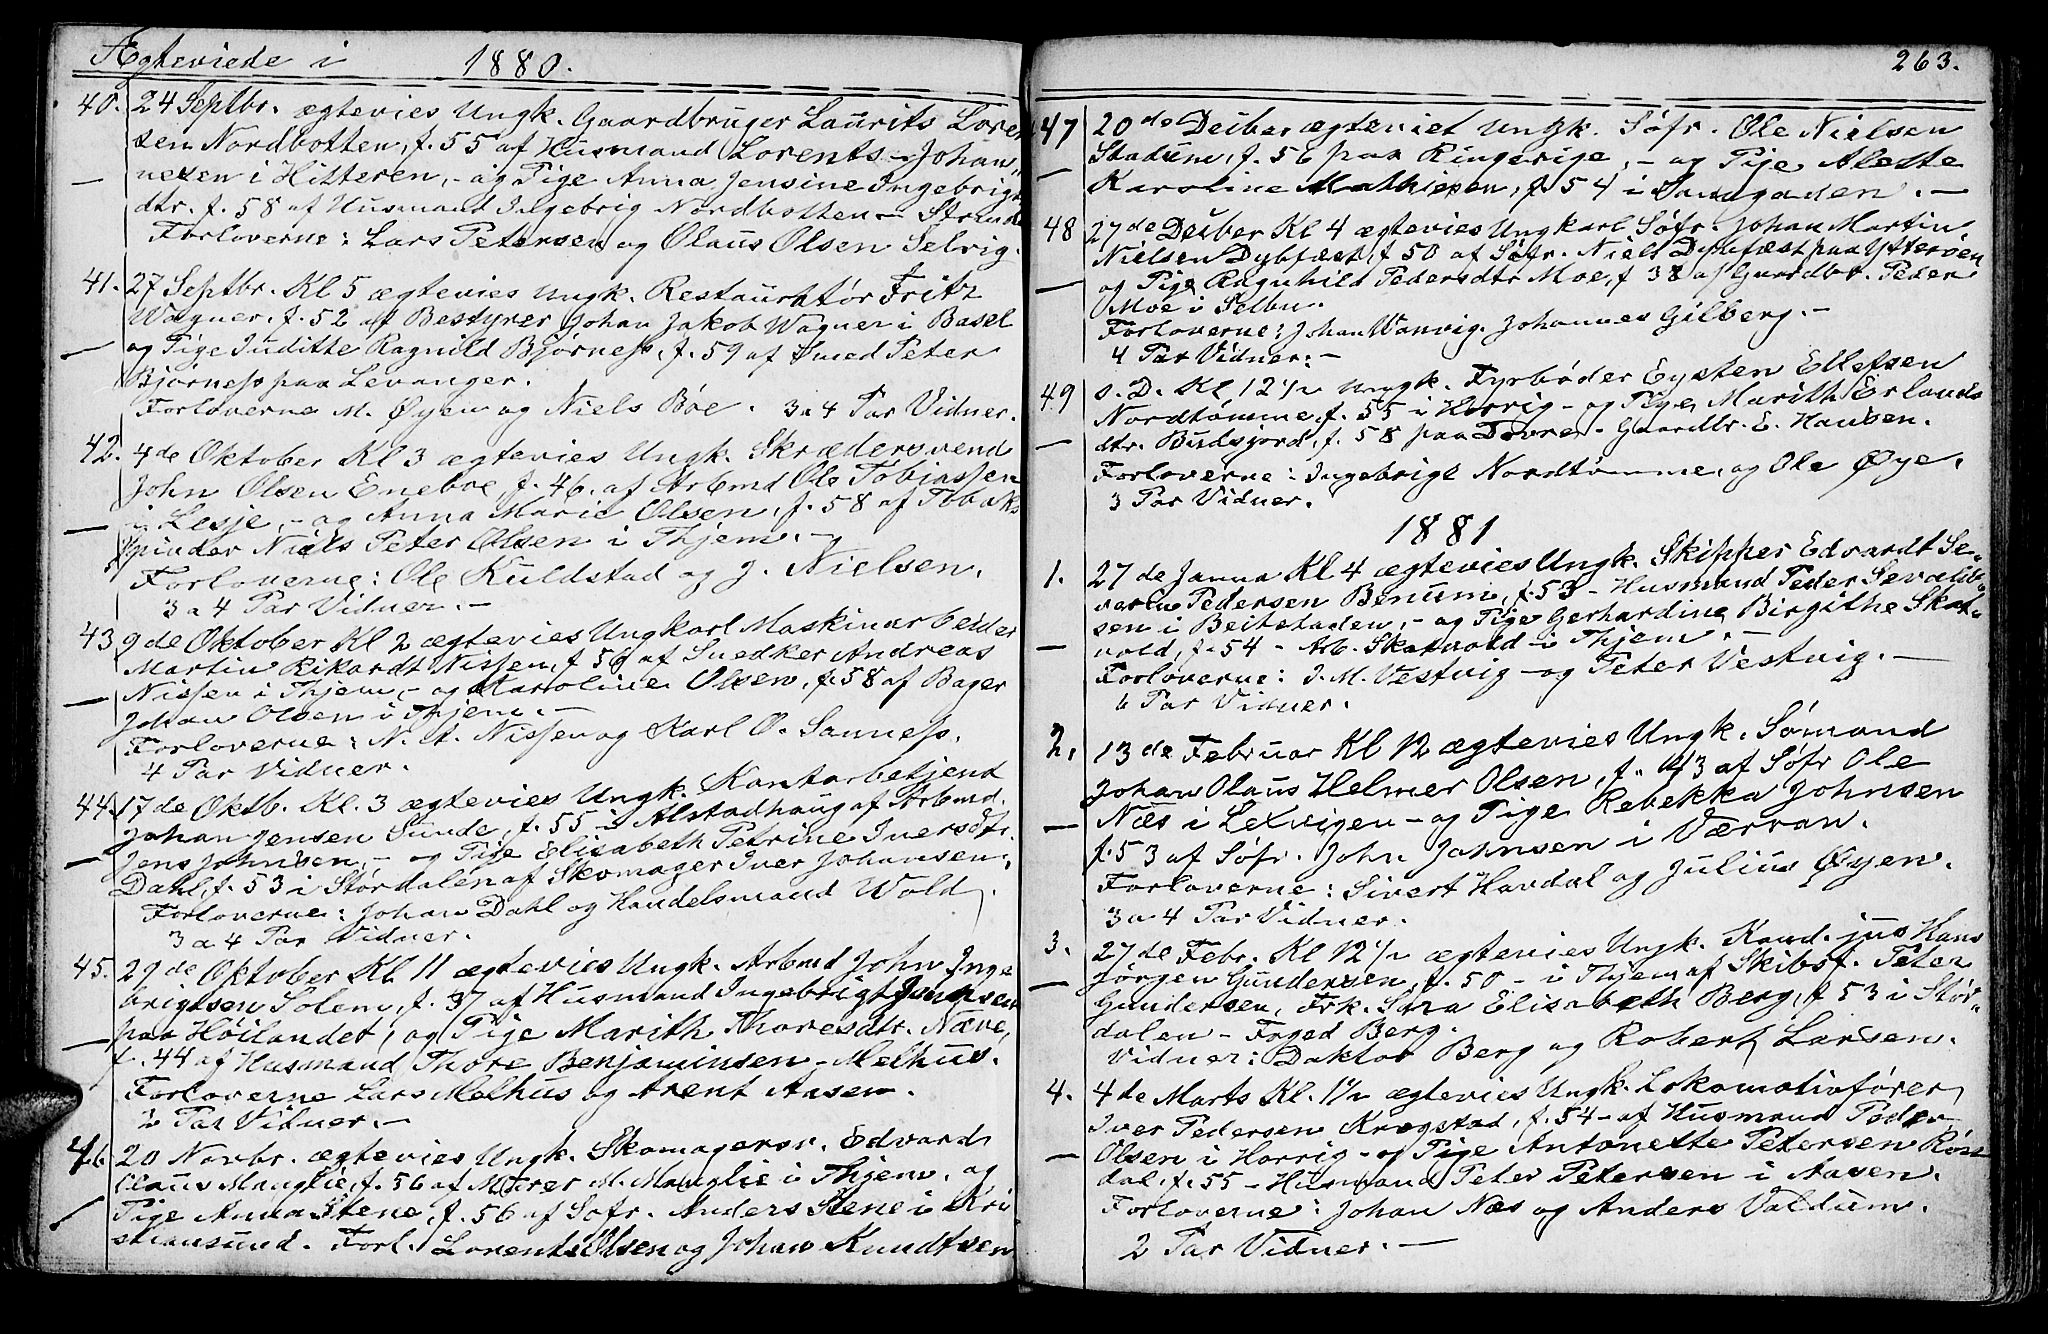 Ægteviede i 1880.
40. 24 Septbr. ægtevies Ungk. Gaardbruger Laurits Loren
sen Nordbotten, f. 55 af Husmand Lorents Johan
nesen i Hitteren, - og Pige Anna Jensine Ingebrigt
dtr. f. 58 af Husmand Ingebrig Nordbotten - Strinde
Forloverne: Lars Petersen og Olaus Olsen Selvig.
41. 27 Septbr. Kl 5 ægtevies Ungk. Restauratør Fritz
Wagner, f. 52 af Bestyrer Johan Jakob Wagner i Basel
og Pige Juditte Ragnild Bjørness, f. 59 af Smed Peter
Bjørness paa Levanger.
Forloverne M. Øyen og Niels Boe. 3 a 4 Par Vidner.
42. 4de Oktober Kl 3 ægtevies Ungk. Skrædersvend
John Olsen Eneboe, f. 46. af Arbmd Ole Tobiassen
i Lesje, - og Anna Marie Olsen, f. 58 af Tobaks
spinder Niels Peter Olsen i Thjem. -
Forloverne: Ole Kuldstad og J. Nielsen.
3 a 4 Par Vidner. -
43 9de Oktober Kl 2 ægtevies Ungkarl Maskinarbeider
Martin Rikardt Nissen, f. 56 af Snedker Andreas
Nissen i Thjem, - og Karoline Olsen, f. 58 af Bager
Johan Olsen i Thjem. -
Forloverne: N. A. Nissen og Karl O. Sanness.
4 Par Vidner.
44. 17de Oktb. Kl. 3 ægtevies Ungk. Kontorbetjend
Johan Jensen Sunde, f. 55 i Alstadhaug af Arbmd.
Jens Johnsen, - og Pige Elisabeth Petrine Iversdtr.
Dahl, f. 53 i Stördalen af Skomager Iver Johansen.
Forloverne: Johan Dahl og Handelsmand Wold.
3 a 4 Par Vidner.
45. 29de Oktober Kl 11 ægtevies Ungk. Arbmd John Inge
brigtsen Solem, f. 37 af Husmand Ingebrigt
paa Høilandet, og Pige Marith Thoresdtr. Næve,
f. 44 af Husmand Thore Benjaminsen - Melhus.
Forloverne Lars Melhus og Arent Aasen.
2 Par Vidner. -
46. 20 Novbr. ægtevies Ungk. Skomagersv. Edvard
Claus Manglie, f. 56 af Murer M. Manglie i Thjem. og
Pige Anna Stene, f. 56 af Søfr. Anders Stene i Kri
stiansund. Forl. Lorents Olsen og Johan Knudtsen
263.
47 20de Decber ægteviet Ungk. Søfr. Ole Nielsen
Stadum, f. 56 paa Ringerige, - og Pige Alette
Karoline Mathiesen, f. 54 i Samgaden. -
48 27de Decber Kl 4 ægtevies Ungkarl Søfr. Johan Martin
Nielsen Dybfæst, f. 50 af Søfr. Niels Dybfæst paa Ytterøen
og Pige Ragnhild Pedersdtr Moe, f. 38 af Gaardbr. Peder
Moe i Selbu.
Forloverne: Johan Wanvig. Johannes Gilberg. -
4 Par Vidner. -
49 s. D. Kl 12 1/2 Ungk. Fyrbøder Eysten Ellefsen
Nordtømme, f. 55 i Horrig - og Pige Marith Erlands
dtr. Budsjord, f. 58 paa Dovre - Gaardbr. E. Hansen.
Forloverne: Ingebrigt Nordtømme, og Ole Øye.
3 Par Vidner.
1881
1. 27de Janua Kl 4 ægtevies Ungk. Skipper Edvardt Se-
verin Pedersen Benum, f. 53 - Husmand Peder Sevalds-
sen i Beitstaden, - og Pige Gerhardine Birgithe Skat-
vold, f. 54 - Arb. Skatvold i Thjem. -
Forloverne: J. M. Vestvig - og Peter Vestvig. -
6 Par Vidner.
2. 13de Februar Kl 12 ægtevies Ungk. Sømand
Johan Olaus Helmer Olsen, f. 43 af Søfr Ole
Næs i Lexvigen - og Pige Rebekka Johnsen
f. 53 af Søfr. John Johnsen i Værran.
Forloverne: Sivert Havdal og Julius Øyen.
3 a 4 Par Vidner.
3. 27de Febr. Kl 12 1/2 ægtevies Ungk. Kand. jus Hans
Jørgen Gundersen, f. 50 - i Thjem af Skibsf. Peter
Gundersen, Frk. Sara Elisabeth Berg, f 53 i Stør-
dalen - Foged Berg.
Vidner: Doktor Berg og Robert Larsen.
4. 4de Marts Kl. 1 1/2 ægtevies Ungk. Lokomotivfører
Iver Pedersen Krogstad, f. 54 - af Husmand Peder
Olsen i Horrig - og Pige Antonette Petersen Røss
dal f. 55 - Husmand Peter Petersen i Aasen.
Forloverne: Johan Næs og Anders Valdum.
2 Par Vidner. -